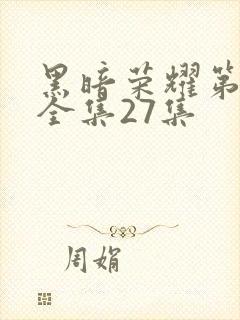 黑暗荣耀第
全集27集
周娟